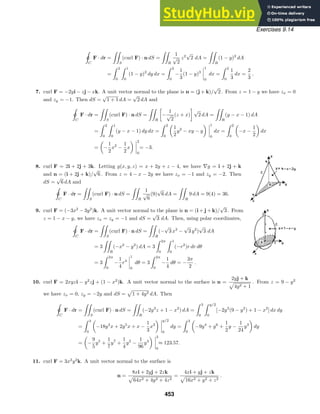 Exercises 9.14
∮_C F · dr = ∬_S (curl F) · n dS = ∬_R 1/√2 z² √2 dA = ∬_R (1 − y)² dA
= ∫_0^2 ∫_0^1 (1 − y)² dy dx = ∫_0^2 −1/3 (1 − y)³ |_0^1 dx = ∫_0^2 1/3 dx = 2/3 .
7. curl F = −2yi − zj − xk. A unit vector normal to the plane is n = (j + k)/√2. From z = 1 − y we have z_x = 0
and z_y = −1. Then dS = √(1 + 1) dA = √2 dA and
∮_C F · dr = ∬_S (curl F) · n dS = ∬_R [−1/√2 (z + x)] √2 dA = ∬_R (y − x − 1) dA
= ∫_0^2 ∫_0^1 (y − x − 1) dy dx = ∫_0^2 (1/2 y² − xy − y) |_0^1 dx = ∫_0^2 (−x − 1/2) dx
= (−1/2 x² − 1/2 x) |_0^2 = −3.
8. curl F = 2i + 2j + 3k. Letting g(x, y, z) = x + 2y + z − 4, we have ∇g = i + 2j + k
and n = (i + 2j + k)/√6 . From z = 4 − x − 2y we have z_x = −1 and z_y = −2. Then
dS = √6 dA and
∮_C F · dr = ∬_S (curl F) · n dS = ∬_R 1/√6 (9)√6 dA = ∬_R 9 dA = 9(4) = 36.
9. curl F = (−3x² − 3y²)k. A unit vector normal to the plane is n = (i + j + k)/√3. From
z = 1 − x − y, we have z_x = z_y = −1 and dS = √3 dA. Then, using polar coordinates,
∮_C F · dr = ∬_S (curl F) · n dS = ∬_R (−√3 x² − √3 y²)√3 dA
= 3 ∬_R (−x² − y²) dA = 3 ∫_0^{2π} ∫_0^1 (−r²)r dr dθ
= 3 ∫_0^{2π} −1/4 r⁴ |_0^1 dθ = 3 ∫_0^{2π} −1/4 dθ = −3π/2 .
10. curl F = 2xyzi − y²zj + (1 − x²)k. A unit vector normal to the surface is n = (2yj + k)/√(4y² + 1) . From z = 9 − y²
we have z_x = 0, z_y = −2y and dS = √(1 + 4y²) dA. Then
∮_C F · dr = ∬_S (curl F) · n dS = ∬_R (−2y³z + 1 − x²) dA = ∫_0^3 ∫_0^{y/2} [−2y³(9 − y²) + 1 − x²] dx dy
= ∫_0^3 (−18y³x + 2y⁵x + x − 1/3 x³) |_0^{y/2} dy = ∫_0^3 (−9y⁴ + y⁶ + 1/2 y − 1/24 y³) dy
= (−9/5 y⁵ + 1/7 y⁷ + 1/4 y² − 1/96 y⁴) |_0^3 ≈ 123.57.
11. curl F = 3x²y²k. A unit vector normal to the surface is
n = (8xi + 2yj + 2zk)/√(64x² + 4y² + 4z²) = (4xi + yj + zk)/√(16x² + y² + z²) .
453